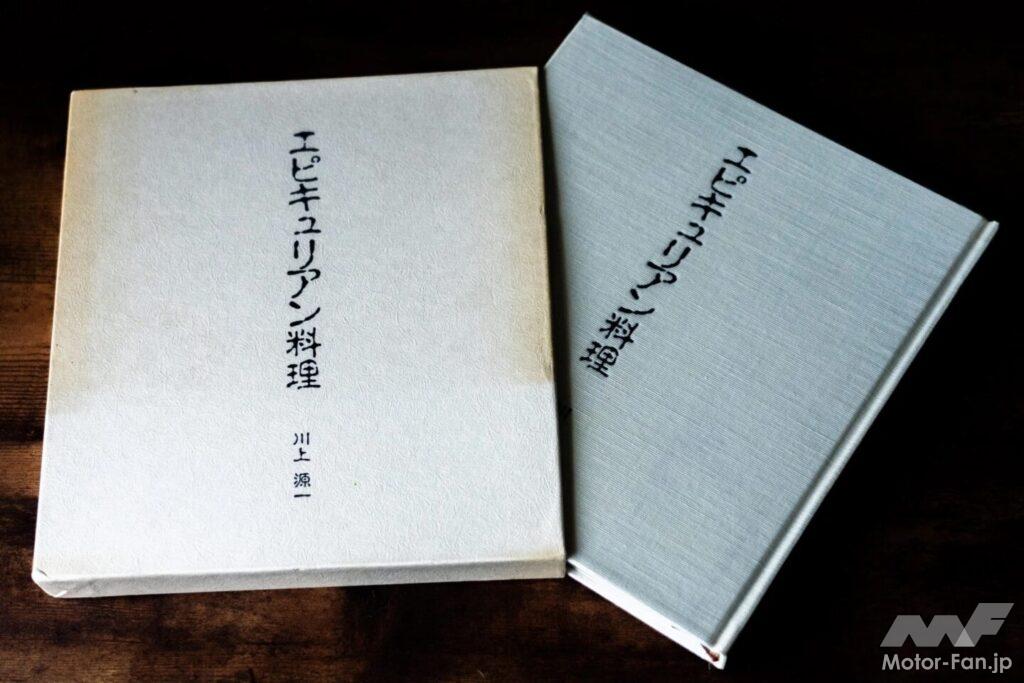 エピキュリアン料理
川上源一
エピキュリアン料理
MF
Motor-Fan.jp